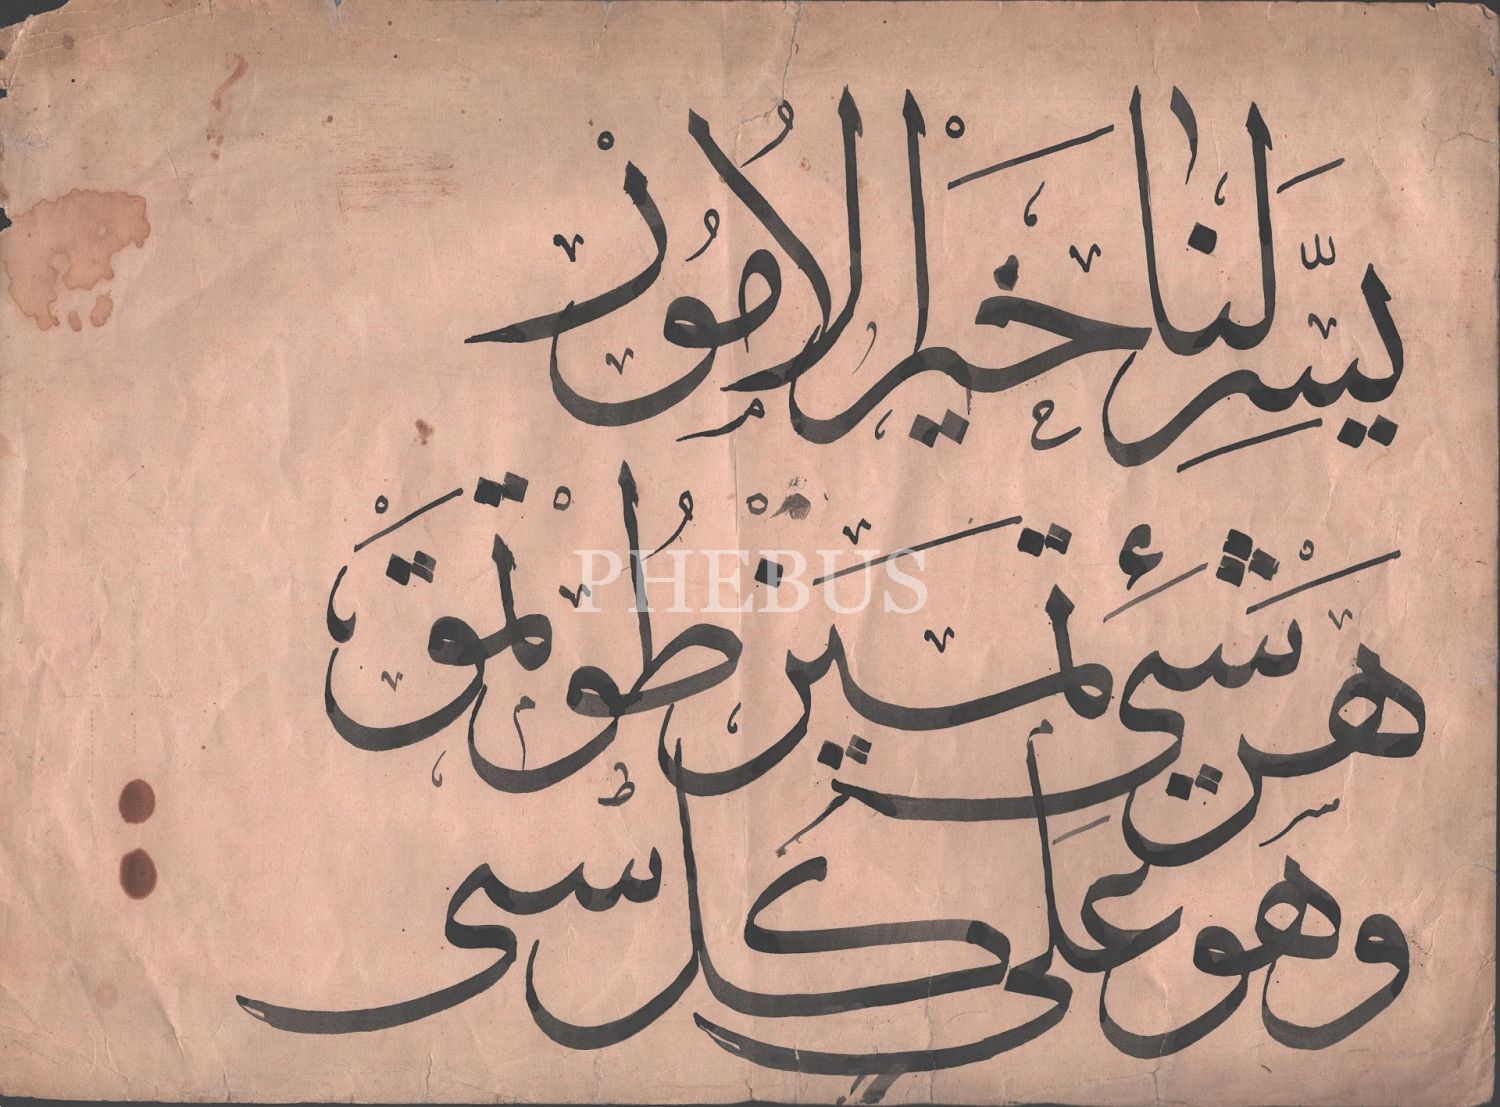 يسر لنا خير الامور
هر شئى تميز طوتمق
PHEBUS
وهو على كل سى